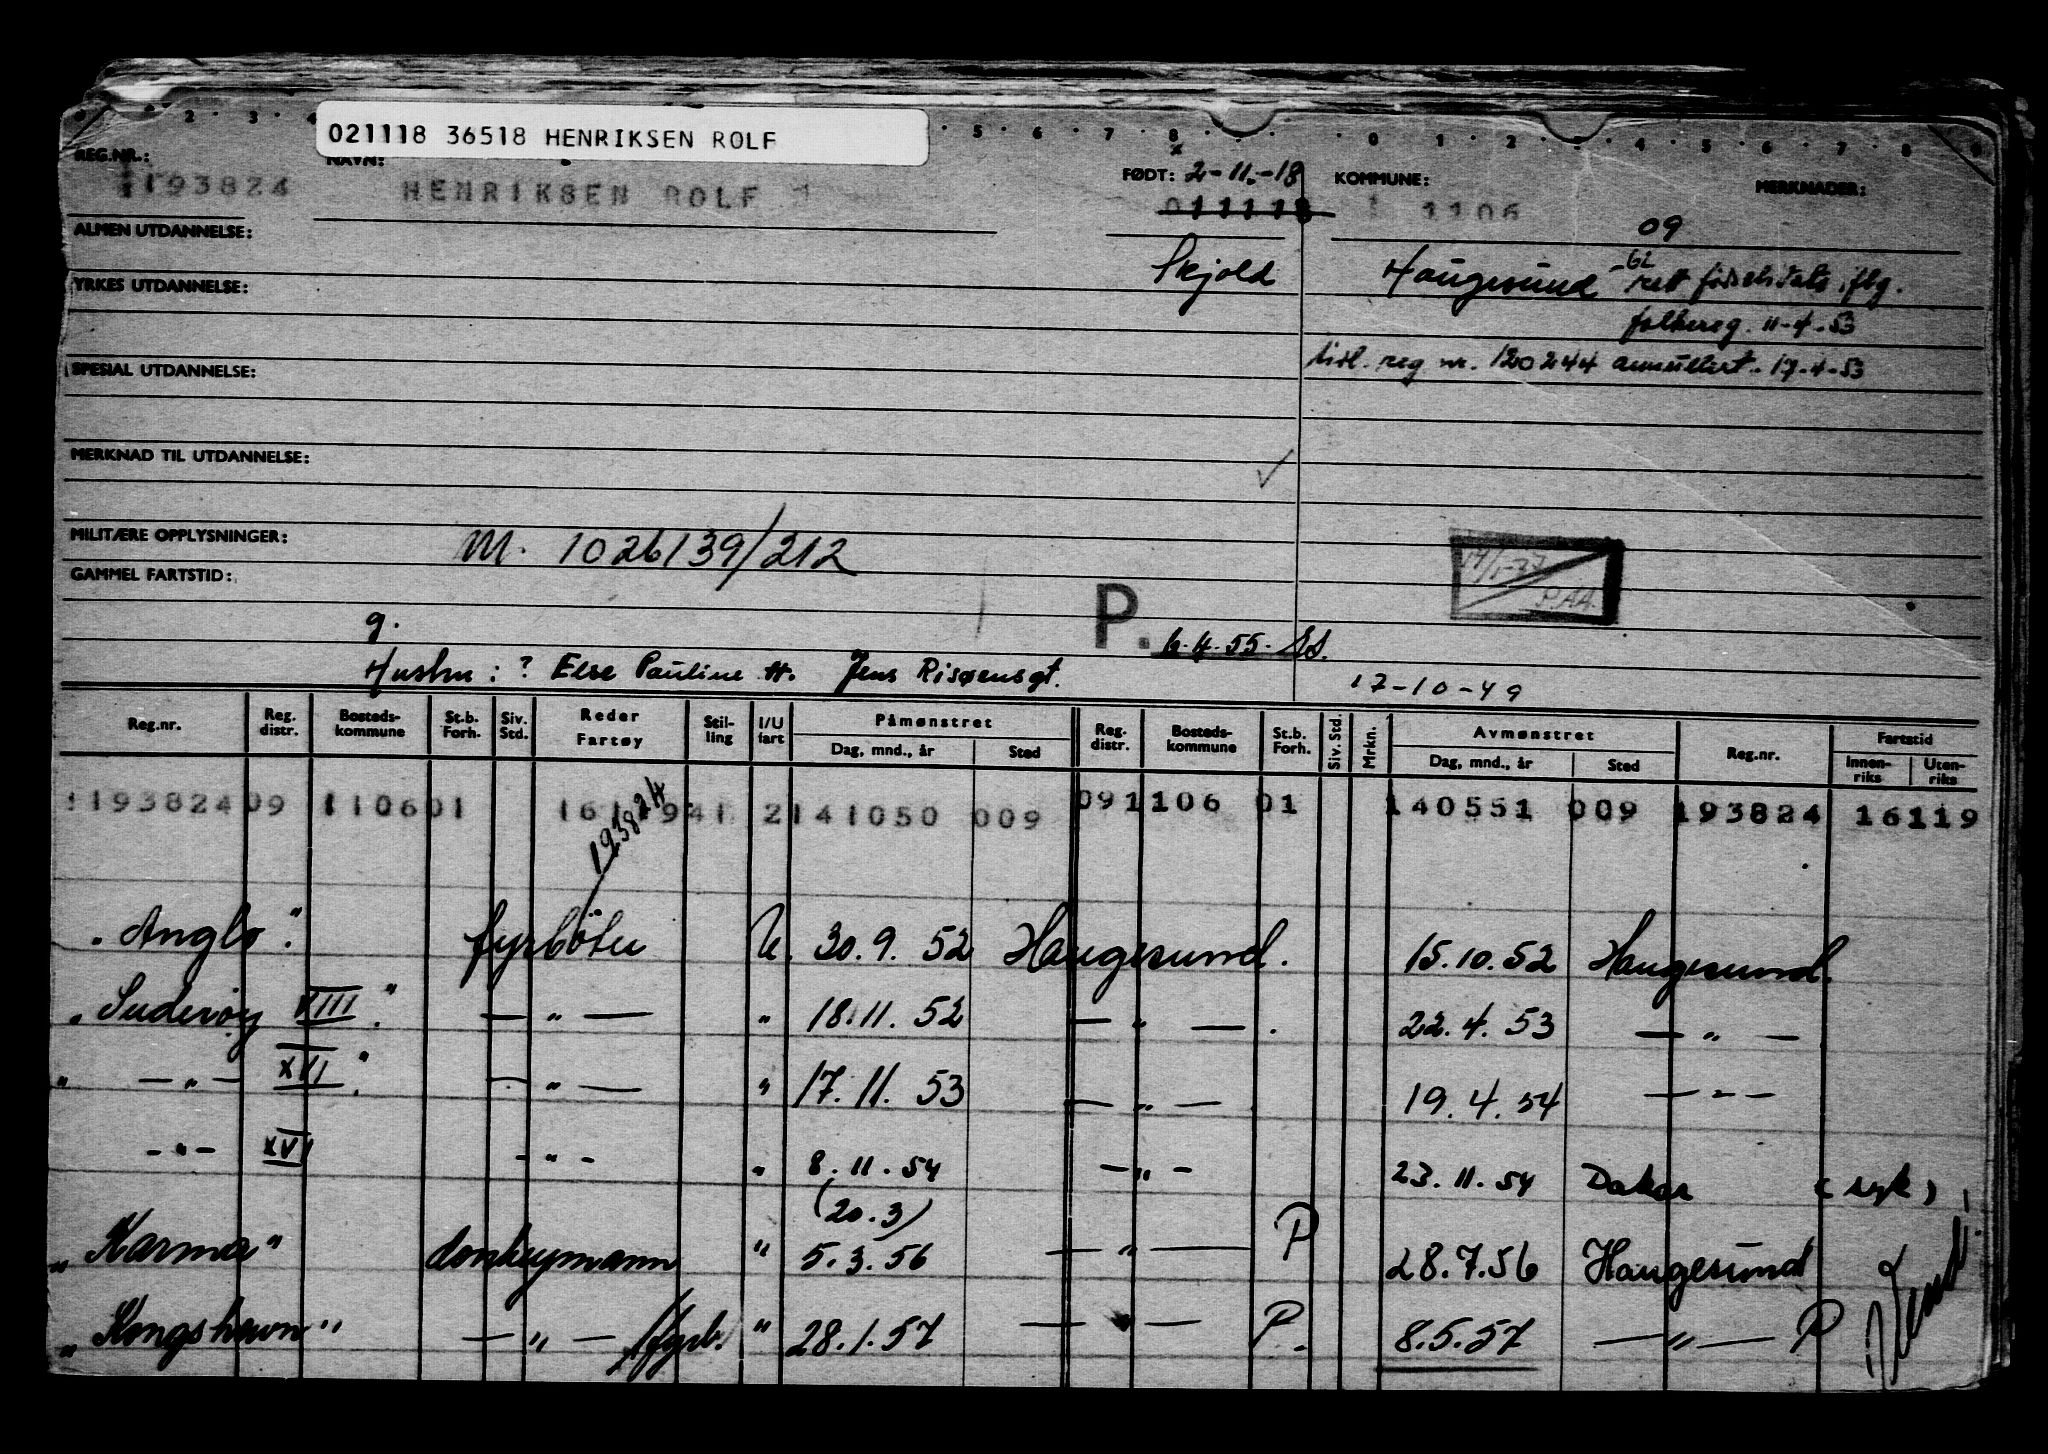 021118 36518 HENRIKSEN ROLF
REG.NR.: NAVN: FØDT: 2-11.-18 KOMMUNE: MERKNADER:
193824 HENRIKSEN ROLF 011118 1106
09
ALMEN UTDANNELSE:
Skjold Haugesund rett fødselsdato iflg.
YRKES UTDANNELSE:
folkereg. 11-4-53
tidl. reg nr. 120244 annullert. 17-4-53
SPESIAL UTDANNELSE:
MERKNAD TIL UTDANNELSE:
MILITÆRE OPPLYSNINGER: M. 1026139/212
GAMMEL FARTSTID:
g. P. 6.4.55.
Hustru: ? Else Pauline H. Jens Risøensgt. 17-10-49
Reg.nr. Reg. distr. Bosteds-kommune St.b. Forh. Siv. Std. Reder Fartøy Stil-ling I/U fart Påmønstret Dag, mnd., år Sted Reg. distr. Bosteds-kommune St.b. Forh. Siv. Std. Mrkn. Avmønstret Dag, mnd., år Sted Reg.nr. Fartstid Innen-riks Uten-riks
193824 09 1106 01 16 941 2 141050 009 09 1106 01 140551 009 193824 16119
193824
"Anglo". fyrbøter U. 30.9.52 Haugesund. 15.10.52 Haugesund.
"Suderøy XIII". — " — " 18.11.52 — " — . 22.4.53 — " —
" — " — XVI". — " — " 17.11.53 — " — 19.4.54 — " —
— " — XVI — " — " 8.11.54 — " — 23.11.54 Dakar (syk)
(20.3)
"Karma" donkeymann " 5.3.56 — " — P 28.7.56 Haugesund
"Kongshavn" — " — /fyrb. " 28.1.57 — " — P. 8.5.57 — " — P